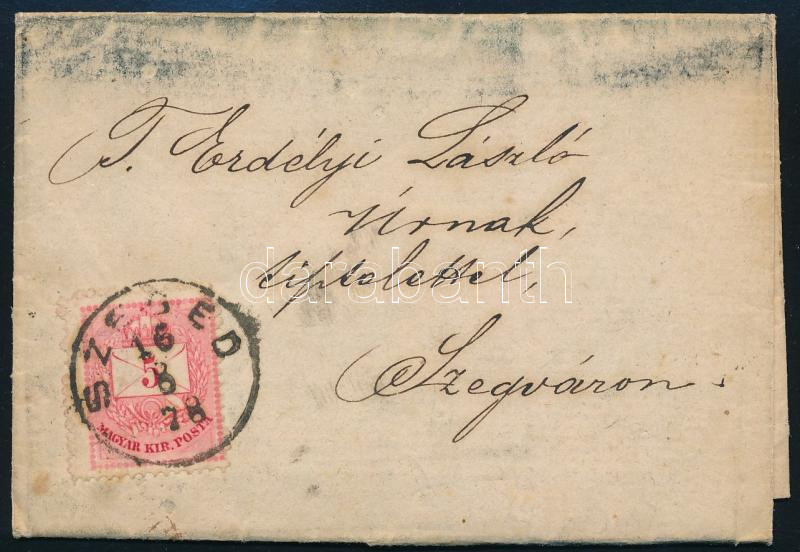 T. Erdélyi László
Úrnak,
tisztelettel,
Szegváron.
darabanth
SZEGED
16
8
78
5
MAGYAR KIR. POSTA